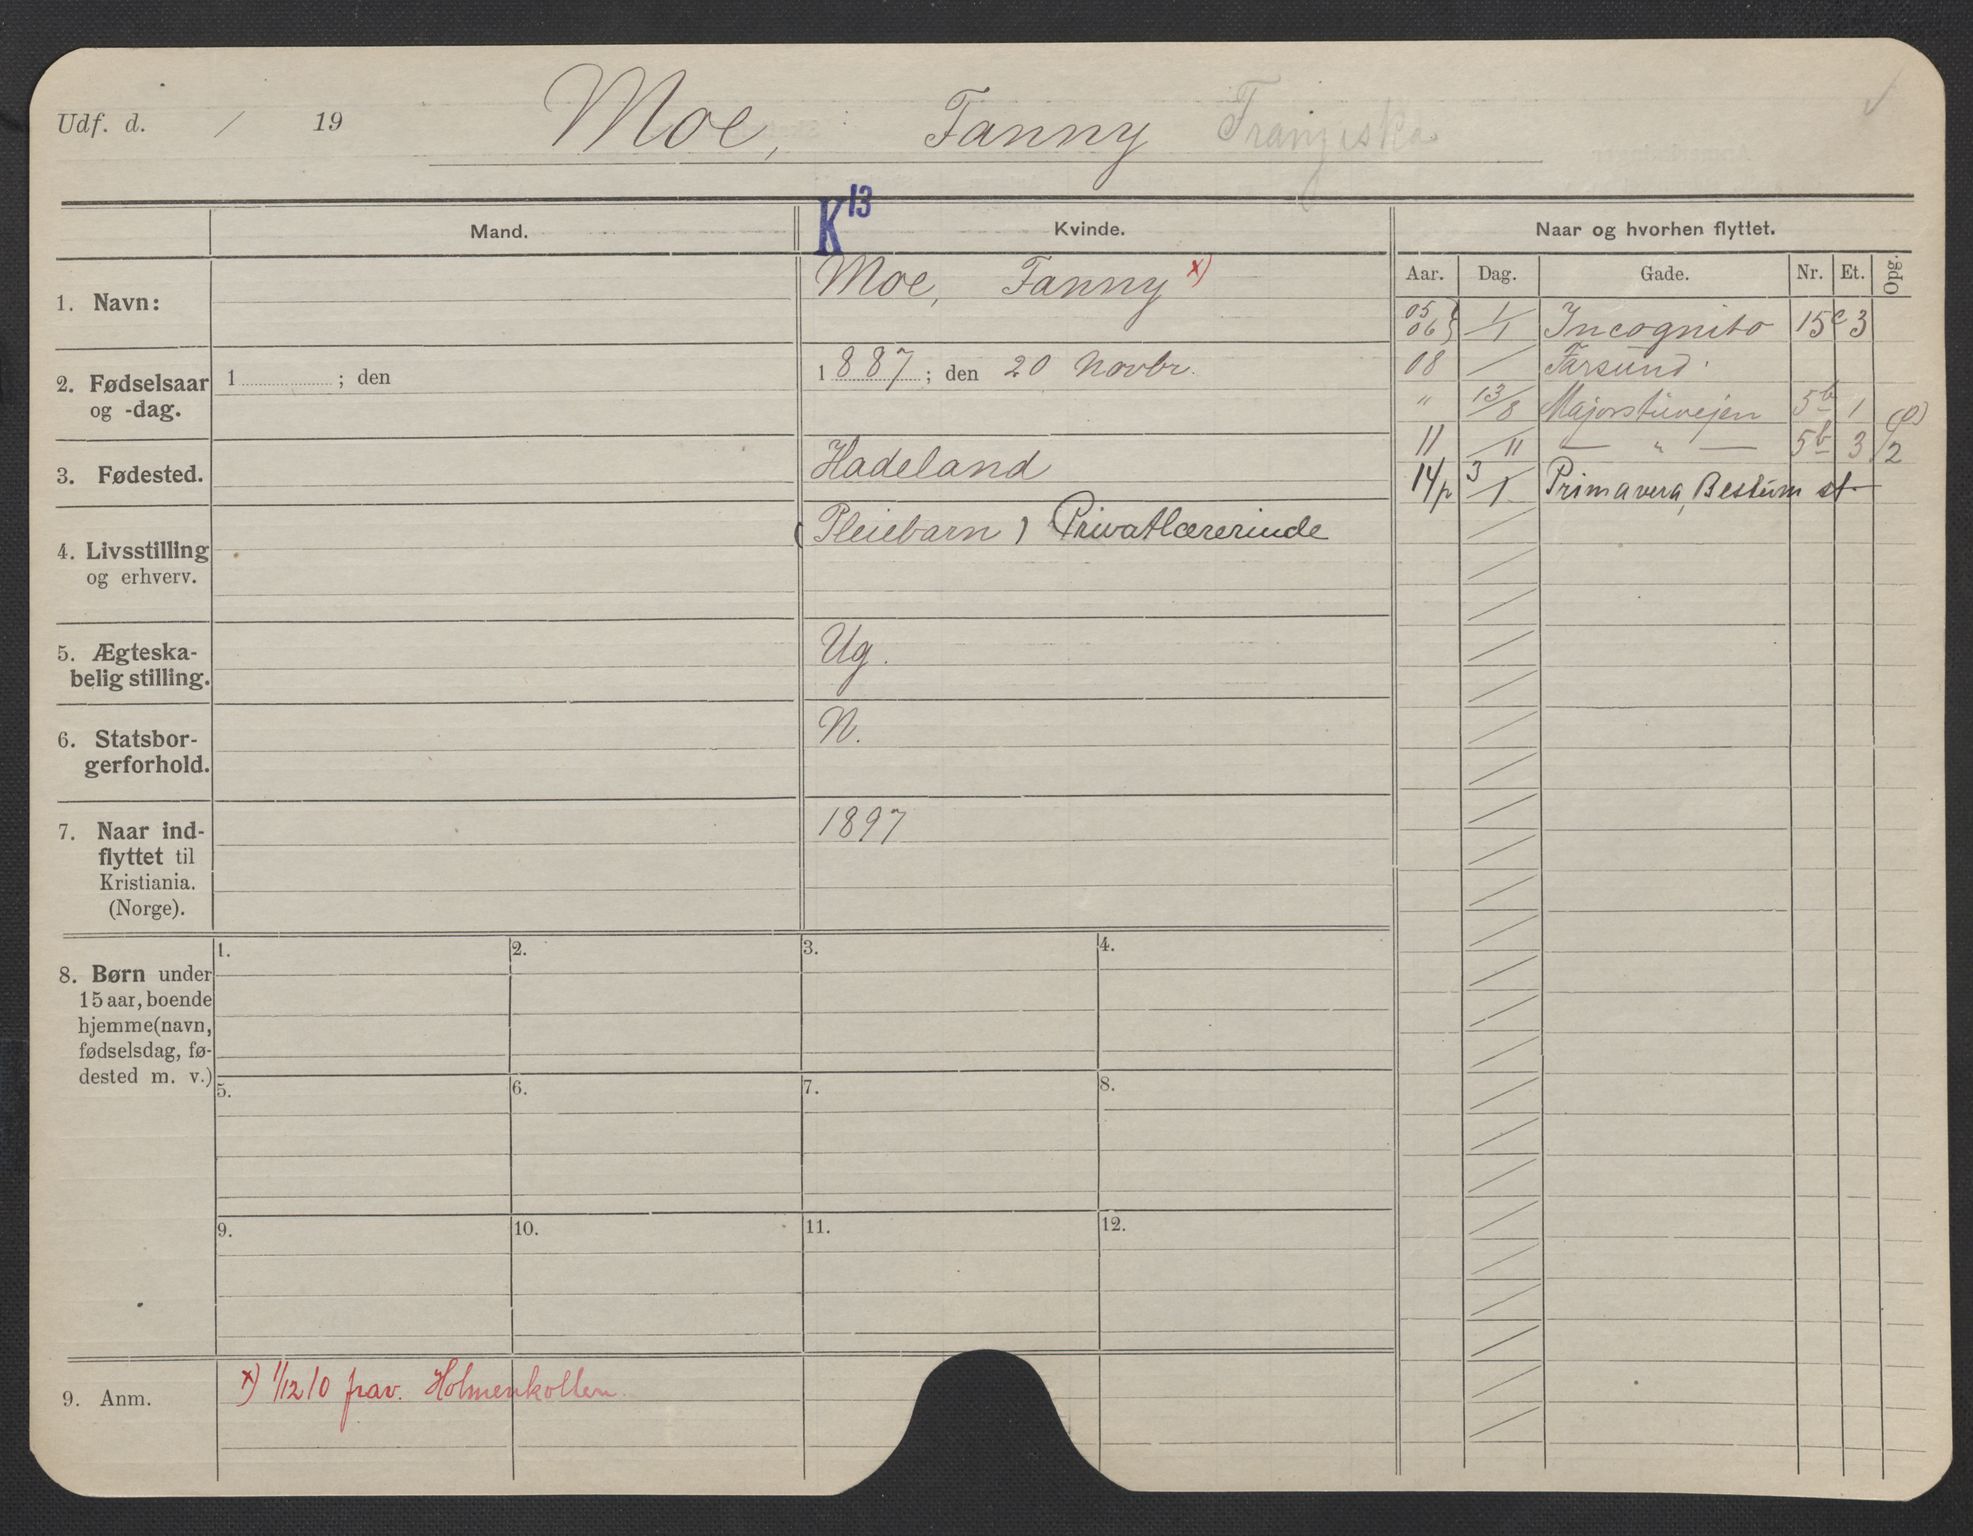 Udf. d. / 19 Moe, Fanny Franziska
K 13
Mand. Kvinde. Naar og hvorhen flyttet.
Aar. Dag. Gade. Nr. Et. Opg.
1. Navn: Moe, Fanny x)
2. Fødselsaar og -dag. 1 ; den
1887; den 20 Novbr.
3. Fødested. Hadeland
4. Livsstilling og erhverv. (Pleiebarn) Privatlærerinde
5. Ægteska-
belig stilling. Ug.
6. Statsbor-
gerforhold. N.
7. Naar ind-
flyttet til
Kristiania.
(Norge). 1897
05 06 } 1/1 Incognito 15c 3
08 / Farsund.
" 13/8 Majorstuvejen 5b 1
11 /11 — " — 5b 3 2
14 3/1 Primavera, Bestum st.
8. Børn under
15 aar, boende
hjemme (navn,
fødselsdag, fø-
dested m. v.)
1. 2. 3. 4.
5. 6. 7. 8.
9. 10. 11. 12.
9. Anm. x) 1/12 10 frav. Holmenkollen.